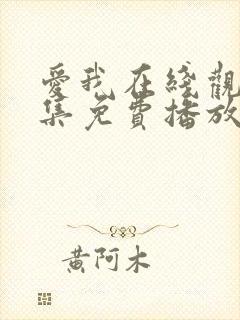 愛我在綫觀
集免費播放
黄阿木